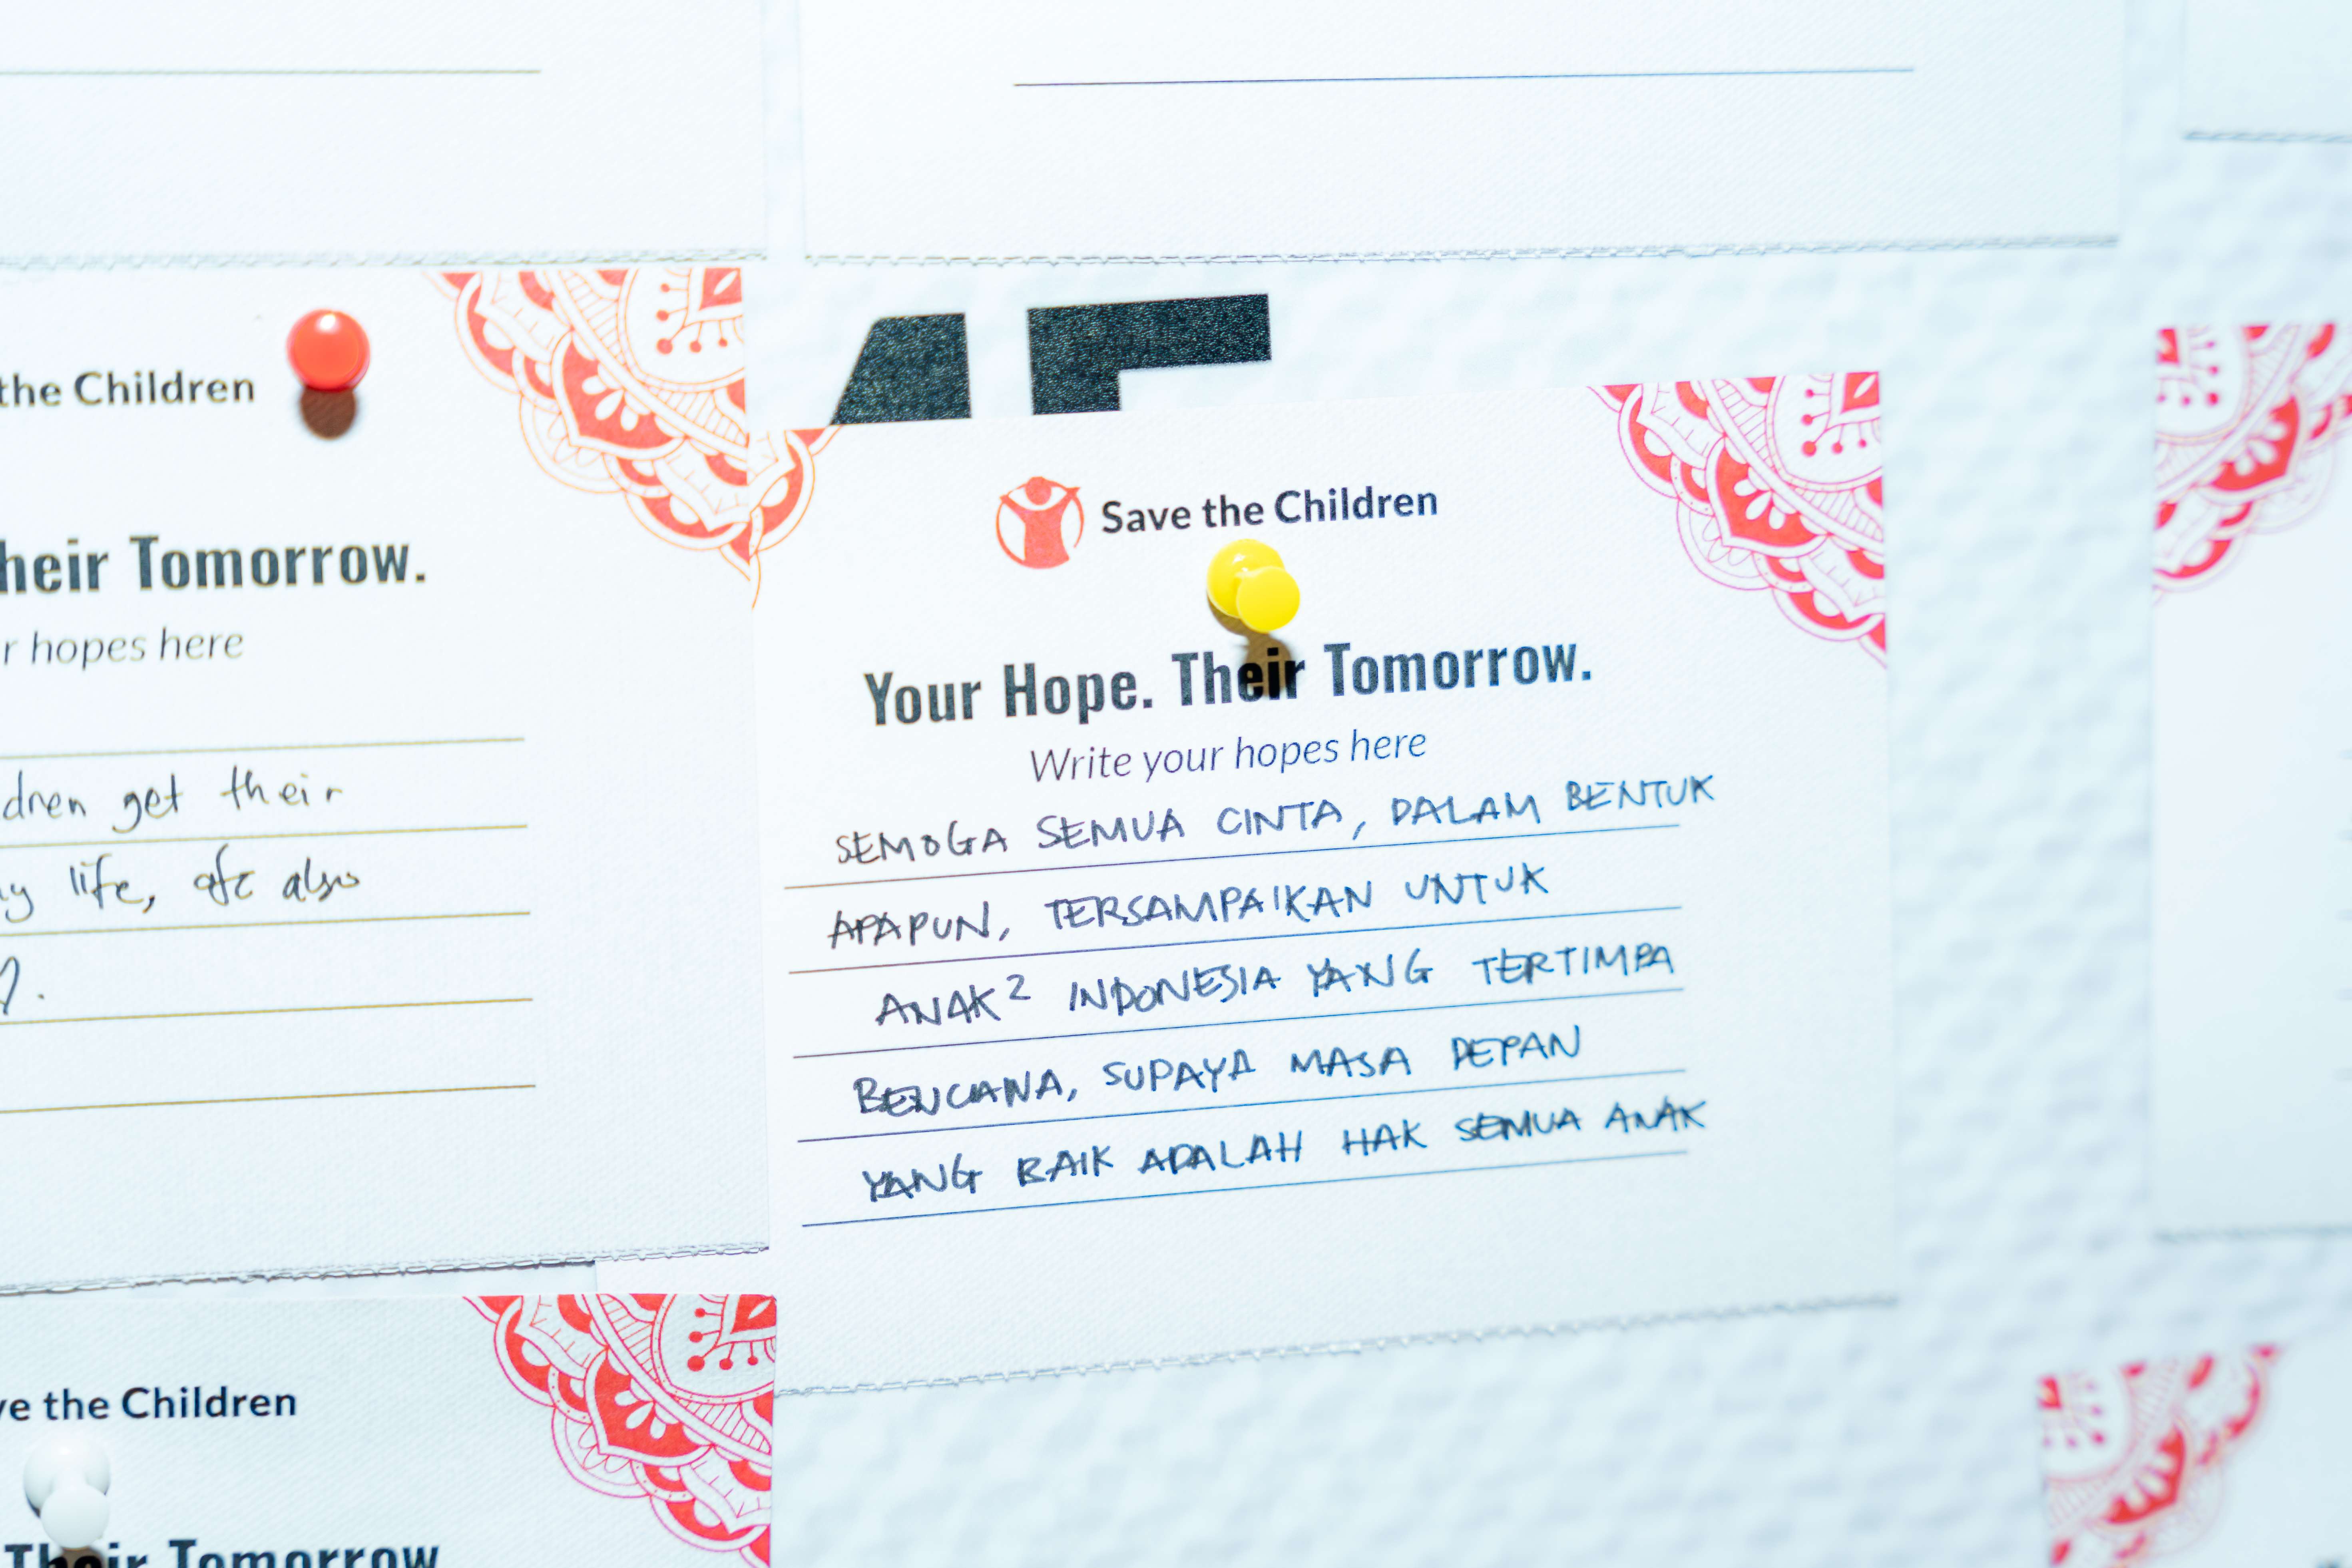 the Children
heir Tomorrow.
r hopes here
dren get their
y life, afc also
Save the Children
Your Hope. Their Tomorrow.
Write your hopes here
SEMOGA SEMUA CINTA, DALAM BENTUK
APAPUN, TERSAMPAIKAN UNTUK
ANAK² INDONESIA YANG TERTIMPA
BENCANA, SUPAYA MASA DEPAN
YANG BAIK ADALAH HAK SEMUA ANAK
ve the Children
Their Tomorrow